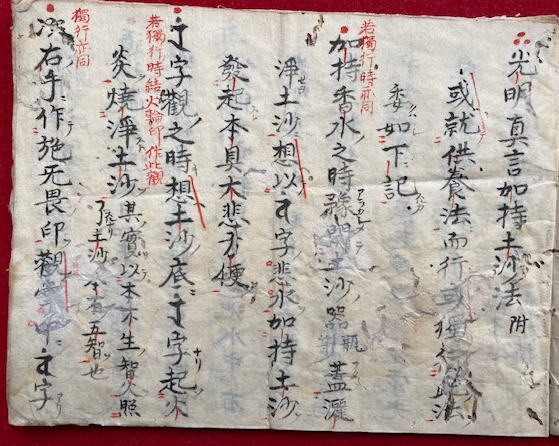 光明真言加持土沙法 附
或就供養法而行或獨行此法
委如下記
若獨行時亦同
加持香水之時豫開土沙器蓋灑
淨土沙想以字悲水加持土沙
發起本具大悲方便
字觀之時想土沙底字起火
若獨行時結火輪印作此觀
炎燒淨土沙其實以本不生智火照
了土沙本有五智也
獨行亦同
次右手作施无畏印觀掌中字